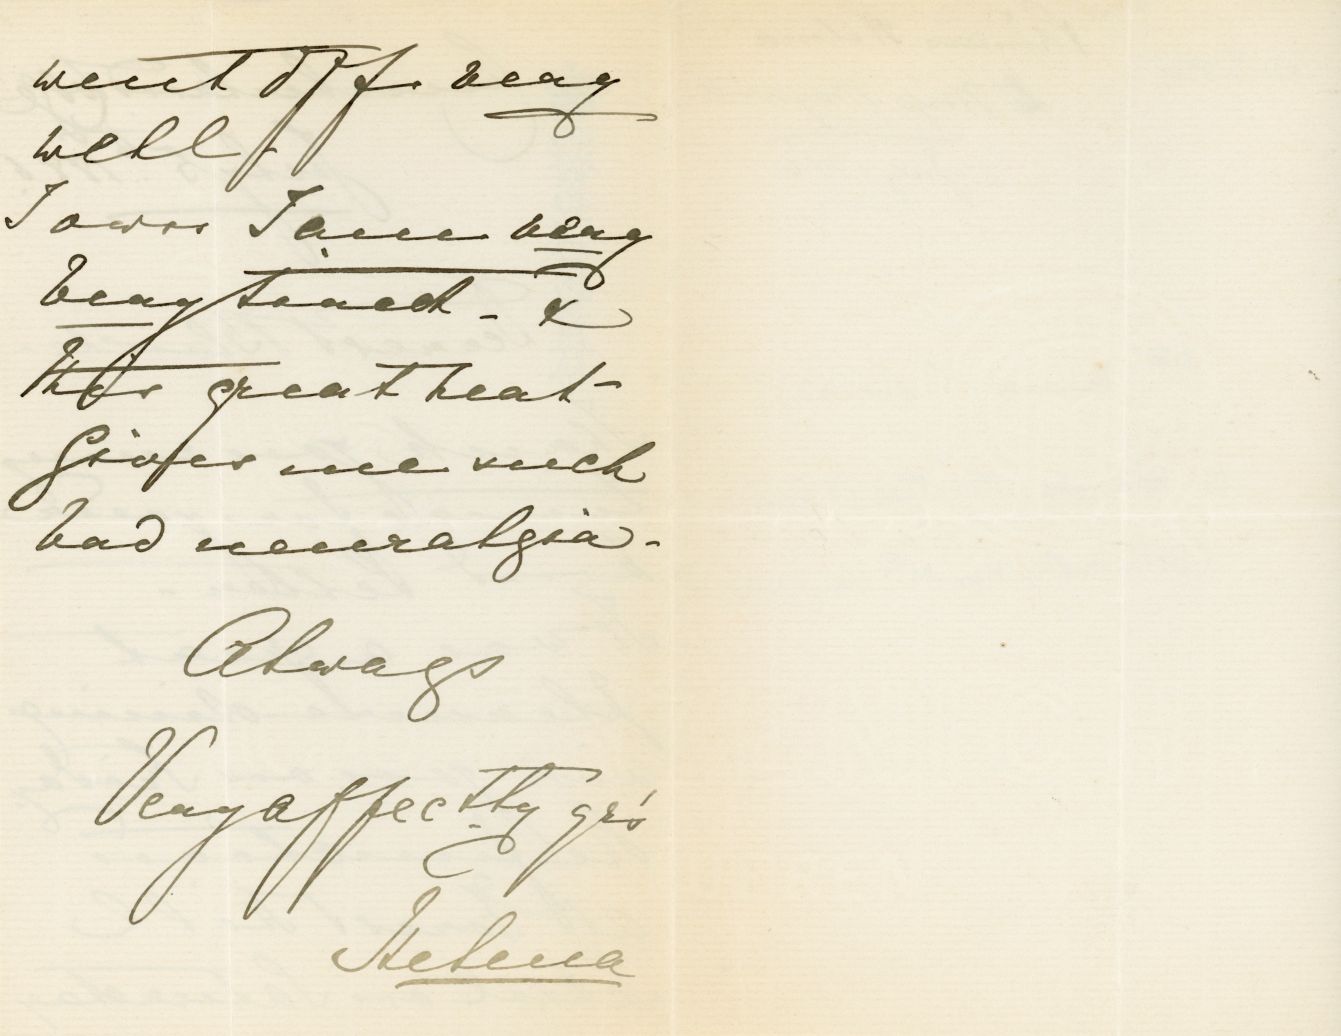 went off very
well -
I own I am very
very tired - &
this great heat -
Gives me such
bad neuralgia -
Always
Very affectly yrs
Helena